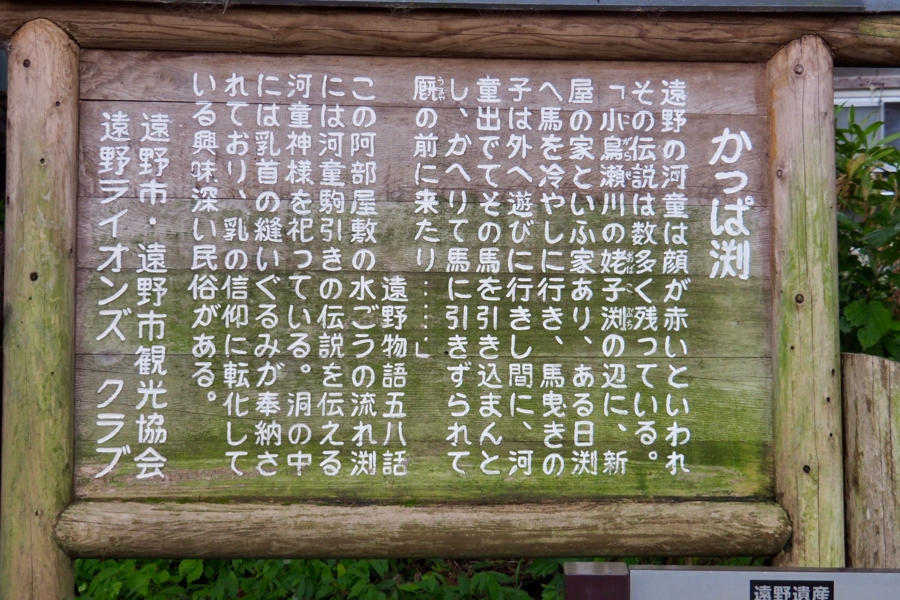 かっぱ渕
遠野の河童は顔が赤いといわれ
その伝説は数多く残っている。
「小烏瀬川の姥子渕の辺に、新
屋の家といふ家あり、ある日渕
へ馬を冷やしに行き、馬曳きの
子は外へ遊びに行きし間に、河
童出でてその馬を引き込まんと
し、かへりて馬に引きずられて
厩の前に来たり……」
遠野物語五八話
この阿部屋敷の水ごうの流れ渕
には河童駒引きの伝説を伝える
河童神様を祀っている。洞の中
には乳首の縫いぐるみが奉納さ
れており、乳の信仰に転化して
いる興味深い民俗がある。
遠野市・遠野市観光協会
遠野ライオンズクラブ
遠野遺産